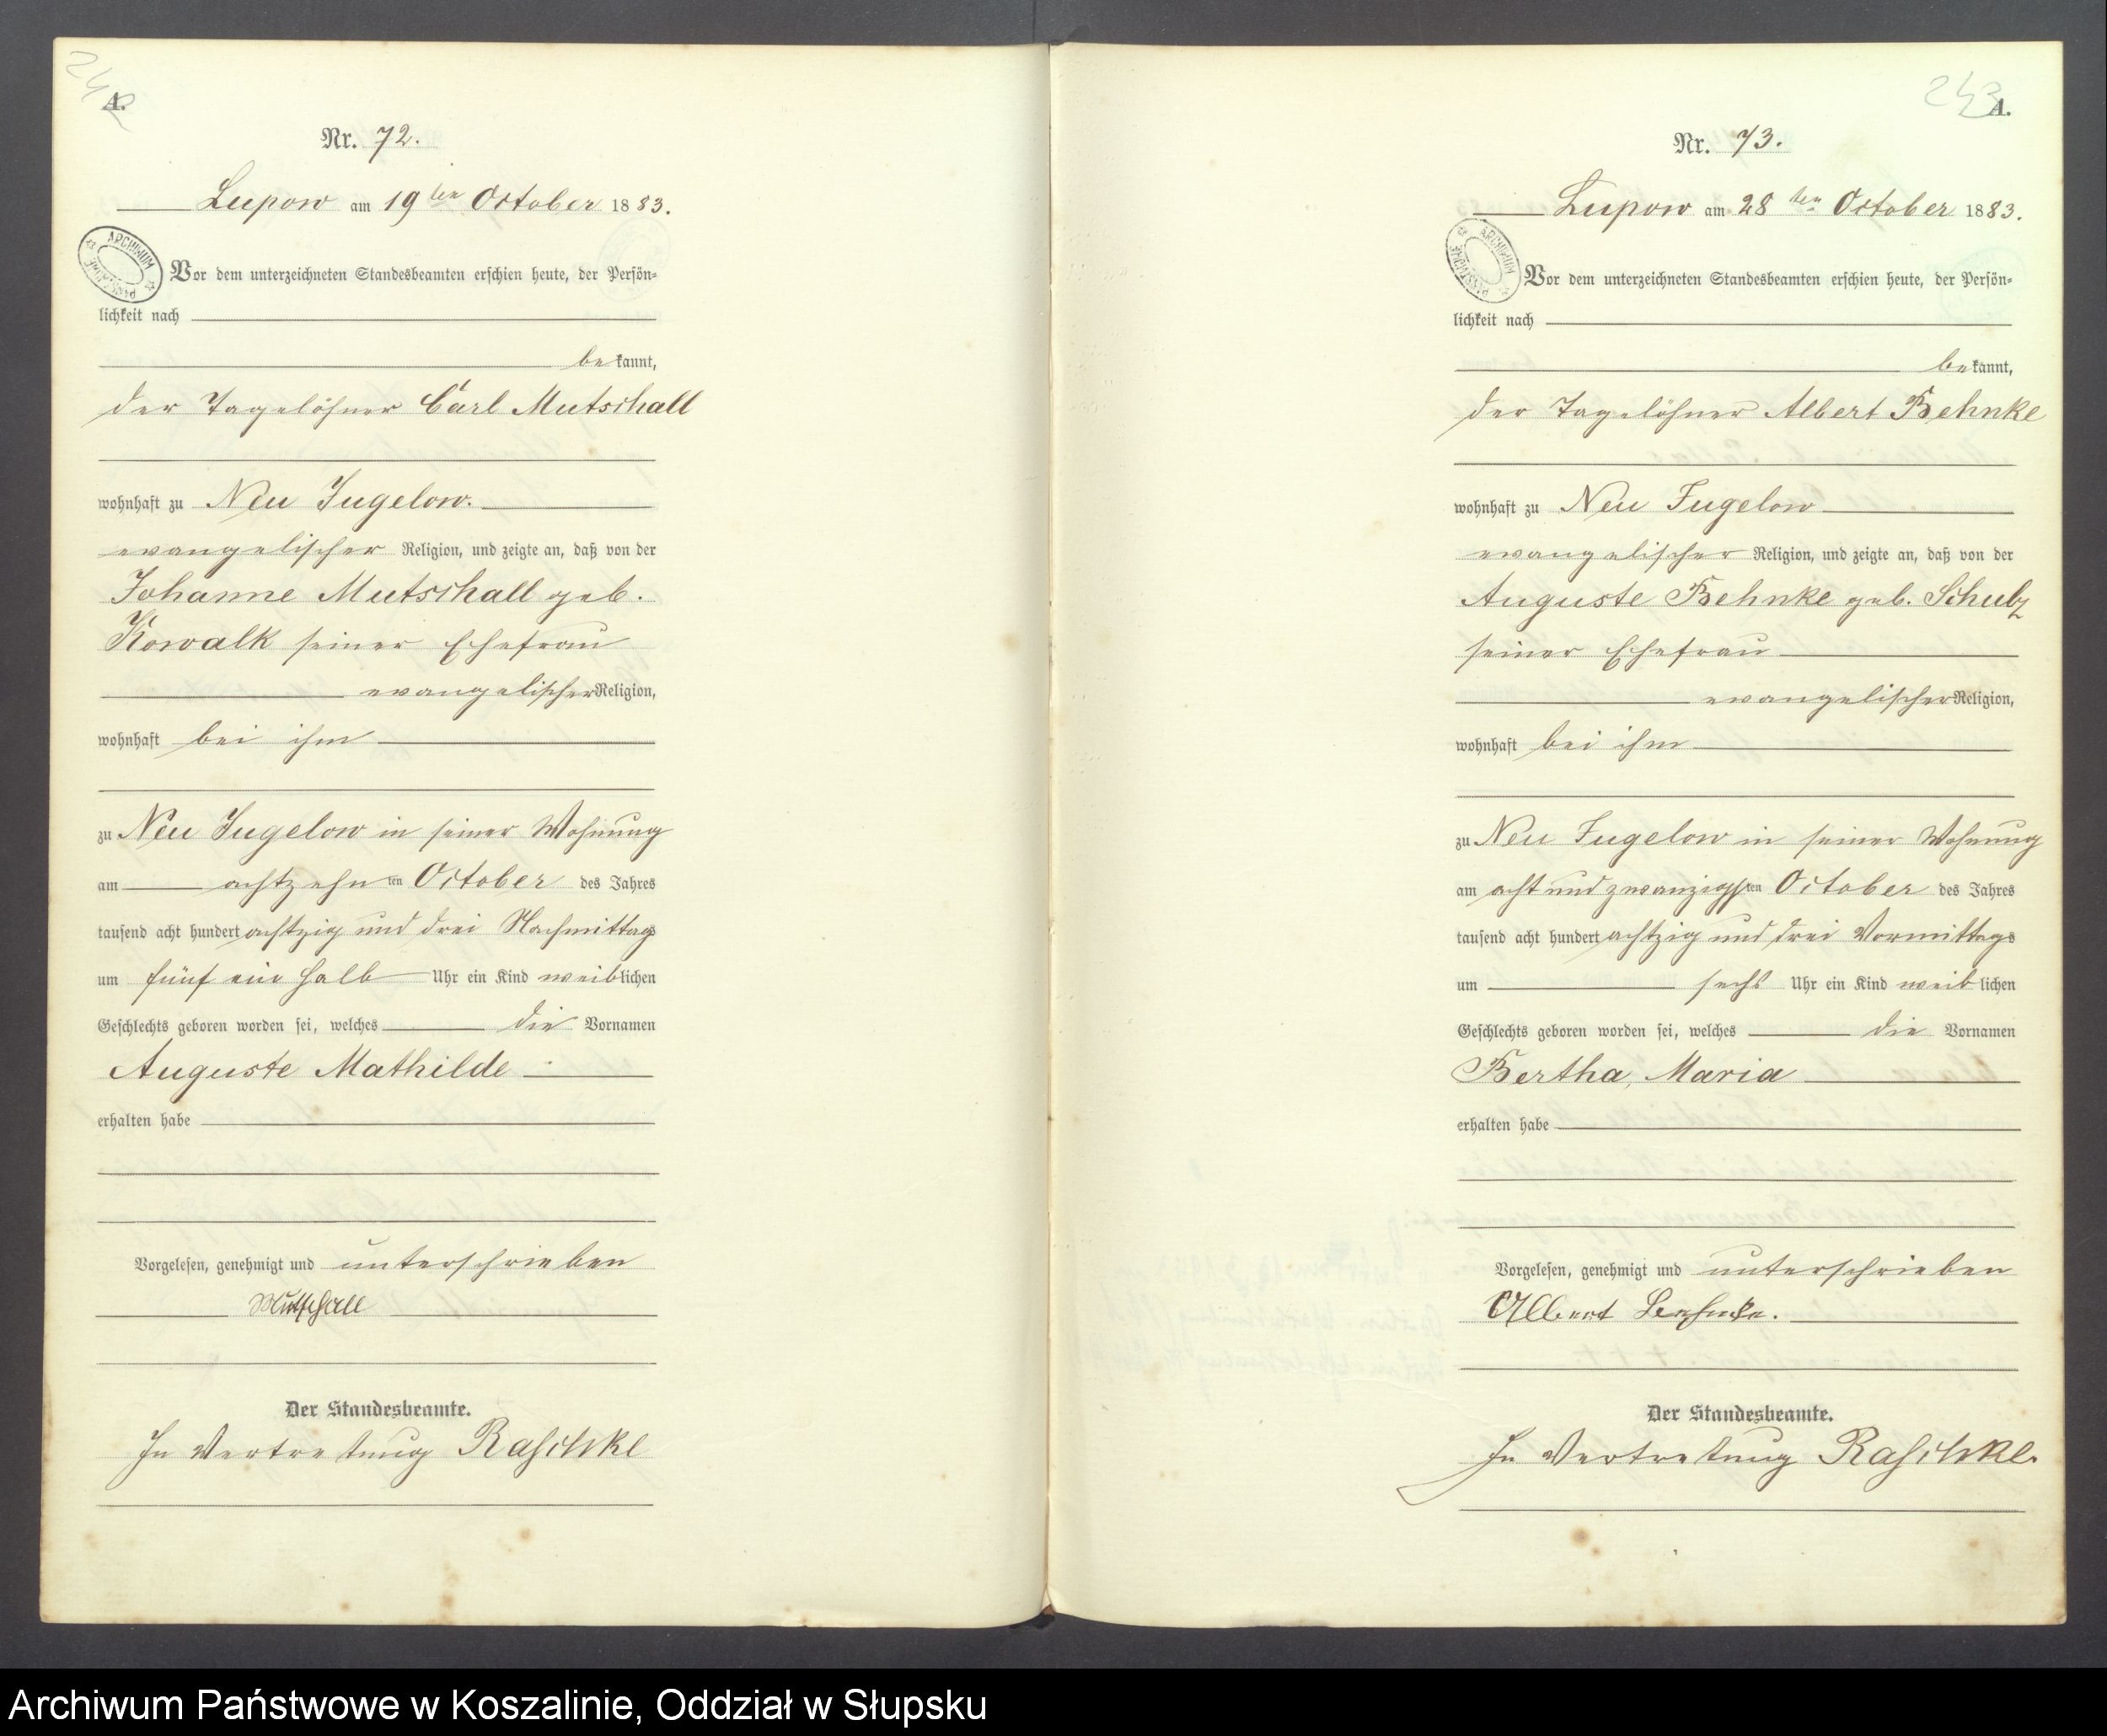 242
A.
Nr. 72.
Lupow am 19ten October 1883.
ARCHIWUM PAŃSTWOWE
Vor dem unterzeichneten Standesbeamten erschien heute, der Persön=
lichkeit nach
bekannt,
der Tagelöhner Carl Mutschall
wohnhaft zu Neu Jugelow.
evangelischer Religion, und zeigte an, daß von der
Johanne Mutschall geb.
Kowalk seiner Ehefrau
evangelischer Religion,
wohnhaft bei ihm
zu Neu Jugelow in seiner Wohnung
am achtzehnten October des Jahres
tausend acht hundert achtzig und drei Nachmittags
um fünf ein halb Uhr ein Kind weiblichen
Geschlechts geboren worden sei, welches die Vornamen
Auguste Mathilde
erhalten habe
Vorgelesen, genehmigt und unterschrieben
Mutschall
Der Standesbeamte.
In Vertretung Raschke
243
A.
Nr. 73.
Lupow am 28ten October 1883.
ARCHIWUM PAŃSTWOWE
Vor dem unterzeichneten Standesbeamten erschien heute, der Persön=
lichkeit nach
bekannt,
der Tagelöhner Albert Behnke
wohnhaft zu Neu Jugelow
evangelischer Religion, und zeigte an, daß von der
Auguste Behnke geb. Schulz
seiner Ehefrau
evangelischer Religion,
wohnhaft bei ihm
zu Neu Jugelow in seiner Wohnung
am acht und zwanzigsten October des Jahres
tausend acht hundert achtzig und drei Vormittags
um sechs Uhr ein Kind weiblichen
Geschlechts geboren worden sei, welches die Vornamen
Bertha, Maria
erhalten habe
Vorgelesen, genehmigt und unterschrieben
Albert Behnke.
Der Standesbeamte.
In Vertretung Raschke.
Archiwum Państwowe w Koszalinie, Oddział w Słupsku